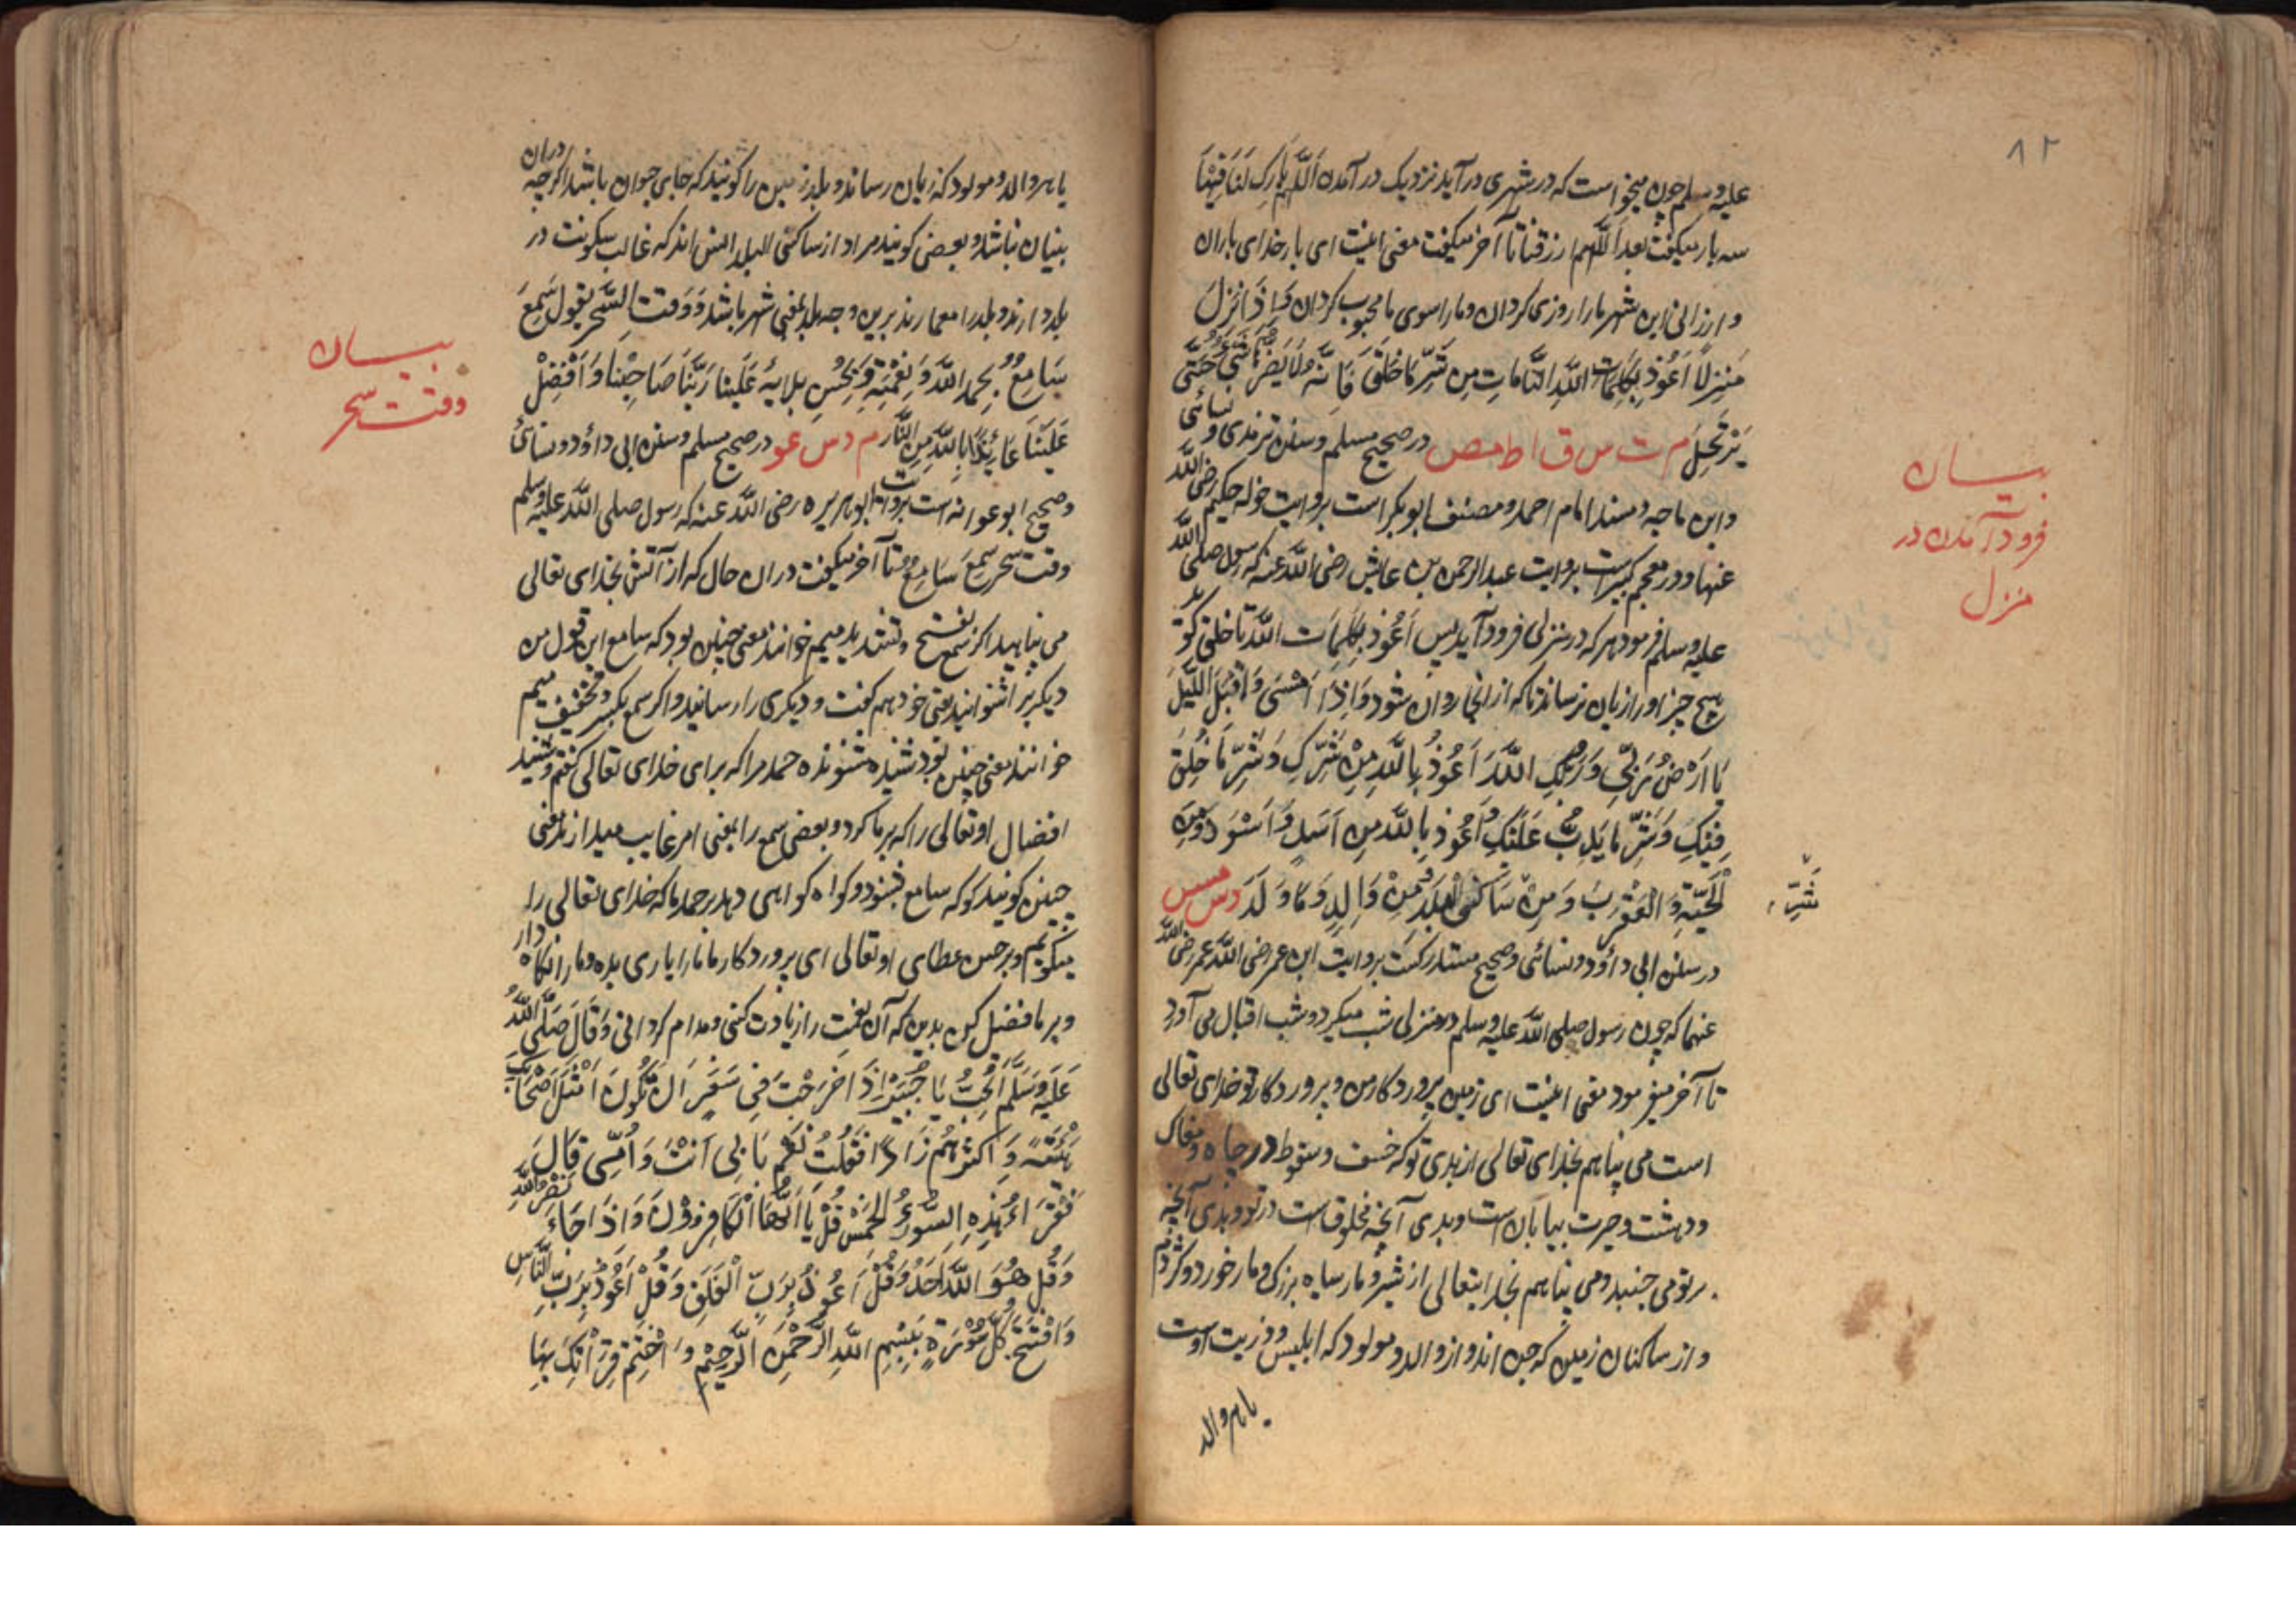 ۸۲
علیه وسلم چون میخواست که در شهری در آید نزدیک در آمدن اَللّٰهُمَّ بَارِكْ لَنَا فِيْهَا
سه بار میکفت بعد اللّهم ارزقنا تا آخر میکفت معنی اینست ای بار خدای باران
و ارزانی این شهر ما را روزی کردان و ما را سوی ما محبوب کردان وَاِذَا نَزَلَ
مَنْزِلًا اَعُوْذُ بِكَلِمَاتِ اللّٰهِ التَّامَّاتِ مِنْ شَرِّ مَا خَلَقَ فَاِنَّهُ لَا يَضُرُّهُ شَيْءٌ حَتّٰى
يَرْتَحِلَ م ت س ق ا ط مص در صحیح مسلم و سنن ترمذی و نسائی
و ابن ماجه و مسند امام احمد و مصنف ابو بکر است بروایت خوله حکیم رضی اللّه
عنها و در معجم کبیر است بروایت عبد الرحمن بن عایش رضی اللّه عنه که رسول صلی اللّه
علیه وسلم فرمود هر که در منزلی فرود آید پس اَعُوْذُ بِكَلِمَاتِ اللّٰه تا خلق کوید
هیچ چیز او را زیان نرساند تا که از انجا روان شود وَاِذَا اَمْسٰى وَاَقْبَلَ اللَّيْلُ
يَا اَرْضُ رَبِّيْ وَرَبُّكِ اللّٰهُ اَعُوْذُ بِاللّٰهِ مِنْ شَرِّكِ وَشَرِّ مَا خُلِقَ
فِيْكِ وَشَرِّ مَا يَدِبُّ عَلَيْكِ وَاَعُوْذُ بِاللّٰهِ مِنْ اَسَدٍ وَاَسْوَدَ وَمِنَ
الْحَيَّةِ وَالْعَقْرَبِ وَمِنْ سَاكِنِي الْبَلَدِ وَمِنْ وَالِدٍ وَمَا وَلَدَ د س مس
در سنن ابی داؤد و نسائی و صحیح مستدرکست بروایت ابن عمر رضی اللّه
عنهما که چون رسول صلی اللّه علیه وسلم در منزلی شب میکرد و شب اقبال می آورد
تا آخر میفرمود معنی اینست ای زمین پروردکار من و پروردکار تو خدای تعالی
است می پناهم بخدای تعالی از بدی تو که خسف و سقوط در چاه و مغاک
و دهشت و حیرت بیابان است و بدی آنچه مخلوق است در تو و بدی آنچه
بر تو می جنبد و می پناهم بخدایتعالی از شیر و مار سیاه بزرک و مار خورد و کژدم
و از ساکنان زمین که جن اند و از والد و مولود که ابلیس و ذریت اوست
یا هر والد
بیان
فرود آمدن در
منزل
شَرِّ
یا هر والد و مولود که زیان رساند و بلد زمین را کویند که جای حیوان باشد اکرچه دران
بنیان نباشد و بعضی کویند مراد از ساکنی البلد انس اند که غالب سکونت در
بلد دارند و بلد را معمارند برین وجه بلد بمعنی شهر باشد وَوَقْتَ السَّحَرِ يَقُوْلُ سَمِعَ
سَامِعٌ بِحَمْدِ اللّٰهِ وَنِعْمَتِهِ وَبِحُسْنِ بَلَائِهِ عَلَيْنَا رَبَّنَا صَاحِبْنَا وَاَفْضِلْ
عَلَيْنَا عَائِذًا بِاللّٰهِ مِنَ النَّارِ م د س عو در صحیح مسلم و سنن ابی داؤد و نسائی
و صحیح ابو عوانه است بروایت ابو هریره رضی اللّه عنه که رسول صلی اللّه علیه وسلم
وقت سحر سَمِعَ سَامِعٌ تا آخر میکفت دران حال که از آتش بخدای تعالی
می پناهید اکر سمع بفتح و تشدید میم خوانند معنی چنین بود که سامع این قول من
دیکر برا شنوانید یعنی خود هم کفت و دیکری را رسانید و اکر سمع بکسر و تخفیف میم
خوانند معنی چنین بود شنید شنونده حمد مرا که برای خدای تعالی کفتم و شنید
افضال او تعالی را که بر ما کرد و بعضی سمع را بمعنی امر غایب میدارند معنی
چنین کویند کو که سامع بشنود و کواه کواهی دهد بر حمد ما که خدای تعالی را
میکویم و بر حسن عطای او تعالی ای پروردکار ما ما را یاری بده و ما را نکاه دار
و بر ما فضل کن بدین که آن نعمت را زیادت کنی و مدام کردانی وَقَالَ صَلَّى اللّٰهُ
عَلَيْهِ وَسَلَّمَ اَتُحِبُّ يَا جُبَيْرُ اِذَا خَرَجْتَ فِيْ سَفَرٍ اَنْ تَكُوْنَ اَمْثَلَ اَصْحَابِكَ
هَيْئَةً وَاَكْثَرَهُمْ زَادًا فَقُلْتُ نَعَمْ بِاَبِيْ اَنْتَ وَاُمِّيْ قَالَ
فَاقْرَاْ هٰذِهِ السُّوَرَ الْخَمْسَ قُلْ يَا اَيُّهَا الْكَافِرُوْنَ وَاِذَا جَاءَ نَصْرُ اللّٰهِ
وَقُلْ هُوَ اللّٰهُ اَحَدٌ وَقُلْ اَعُوْذُ بِرَبِّ الْفَلَقِ وَقُلْ اَعُوْذُ بِرَبِّ النَّاسِ
وَافْتَتِحْ كُلَّ سُوْرَةٍ بِبِسْمِ اللّٰهِ الرَّحْمٰنِ الرَّحِيْمِ وَاخْتِمْ قِرَاءَتَكَ بِهَا
بیان
وقت سحر